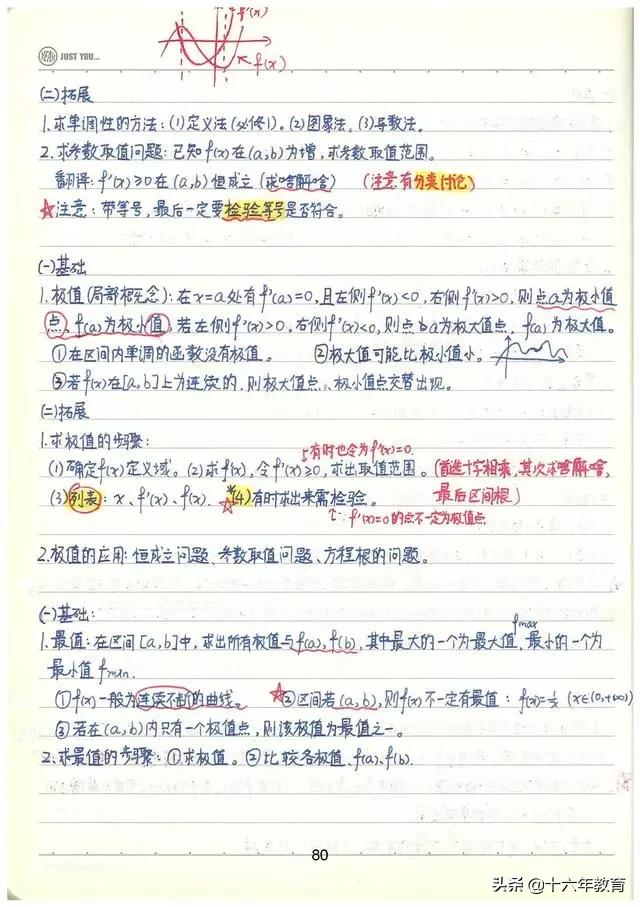 f'(x)
f(x)
YEAH JUST YOU...
(二)拓展
1.求单调性的方法:(1)定义法(必修1)。(2)图象法。(3)导数法。
2.求参数取值问题:已知f(x)在(a,b)为增,求参数取值范围。
翻译:f'(x)≥0在(a,b)恒成立(求啥解啥) (注意有分类讨论)
☆注意:带等号,最后一定要检验等号是否符合。
(一)基础
1.极值(局部概念):在x=a处有f'(a)=0,且左侧f'(x)<0,右侧f'(x)>0,则点a为极小值
点,f(a)为极小值,若左侧f'(x)>0,右侧f'(x)<0,则点a为极大值点,f(a)为极大值。
①在区间内单调的函数没有极值。 ②极大值可能比极小值小。
③若f(x)在[a,b]上为连续的,则极大值点、极小值点交替出现。
(二)拓展
1.求极值的步骤:
有时也令为f'(x)=0.
(1)确定f(x)定义域。(2)求f'(x),令f'(x)≥0,求出取值范围。(首选十字相乘,其次求啥解啥,
(3)列表:x、f'(x)、f(x). ☆(4)有时求出来需检验。 最后区间根)
∵f'(x)=0的点不一定为极值点
2.极值的应用:恒成立问题、参数取值问题、方程根的问题。
(一)基础:
1.最值:在区间[a,b]中,求出所有极值与f(a),f(b),其中最大的一个为最大值fmax,最小的一个为
最小值fmin.
①f(x)一般为连续不断的曲线。 ☆②区间若(a,b),则f(x)不一定有最值:f(x)=1/x (x∈(0,+∞))
③若在(a,b)内只有一个极值点,则该极值为最值之一。
2.求最值的步骤:①求极值。②比较各极值、f(a)、f(b).
80
头条@十六年教育